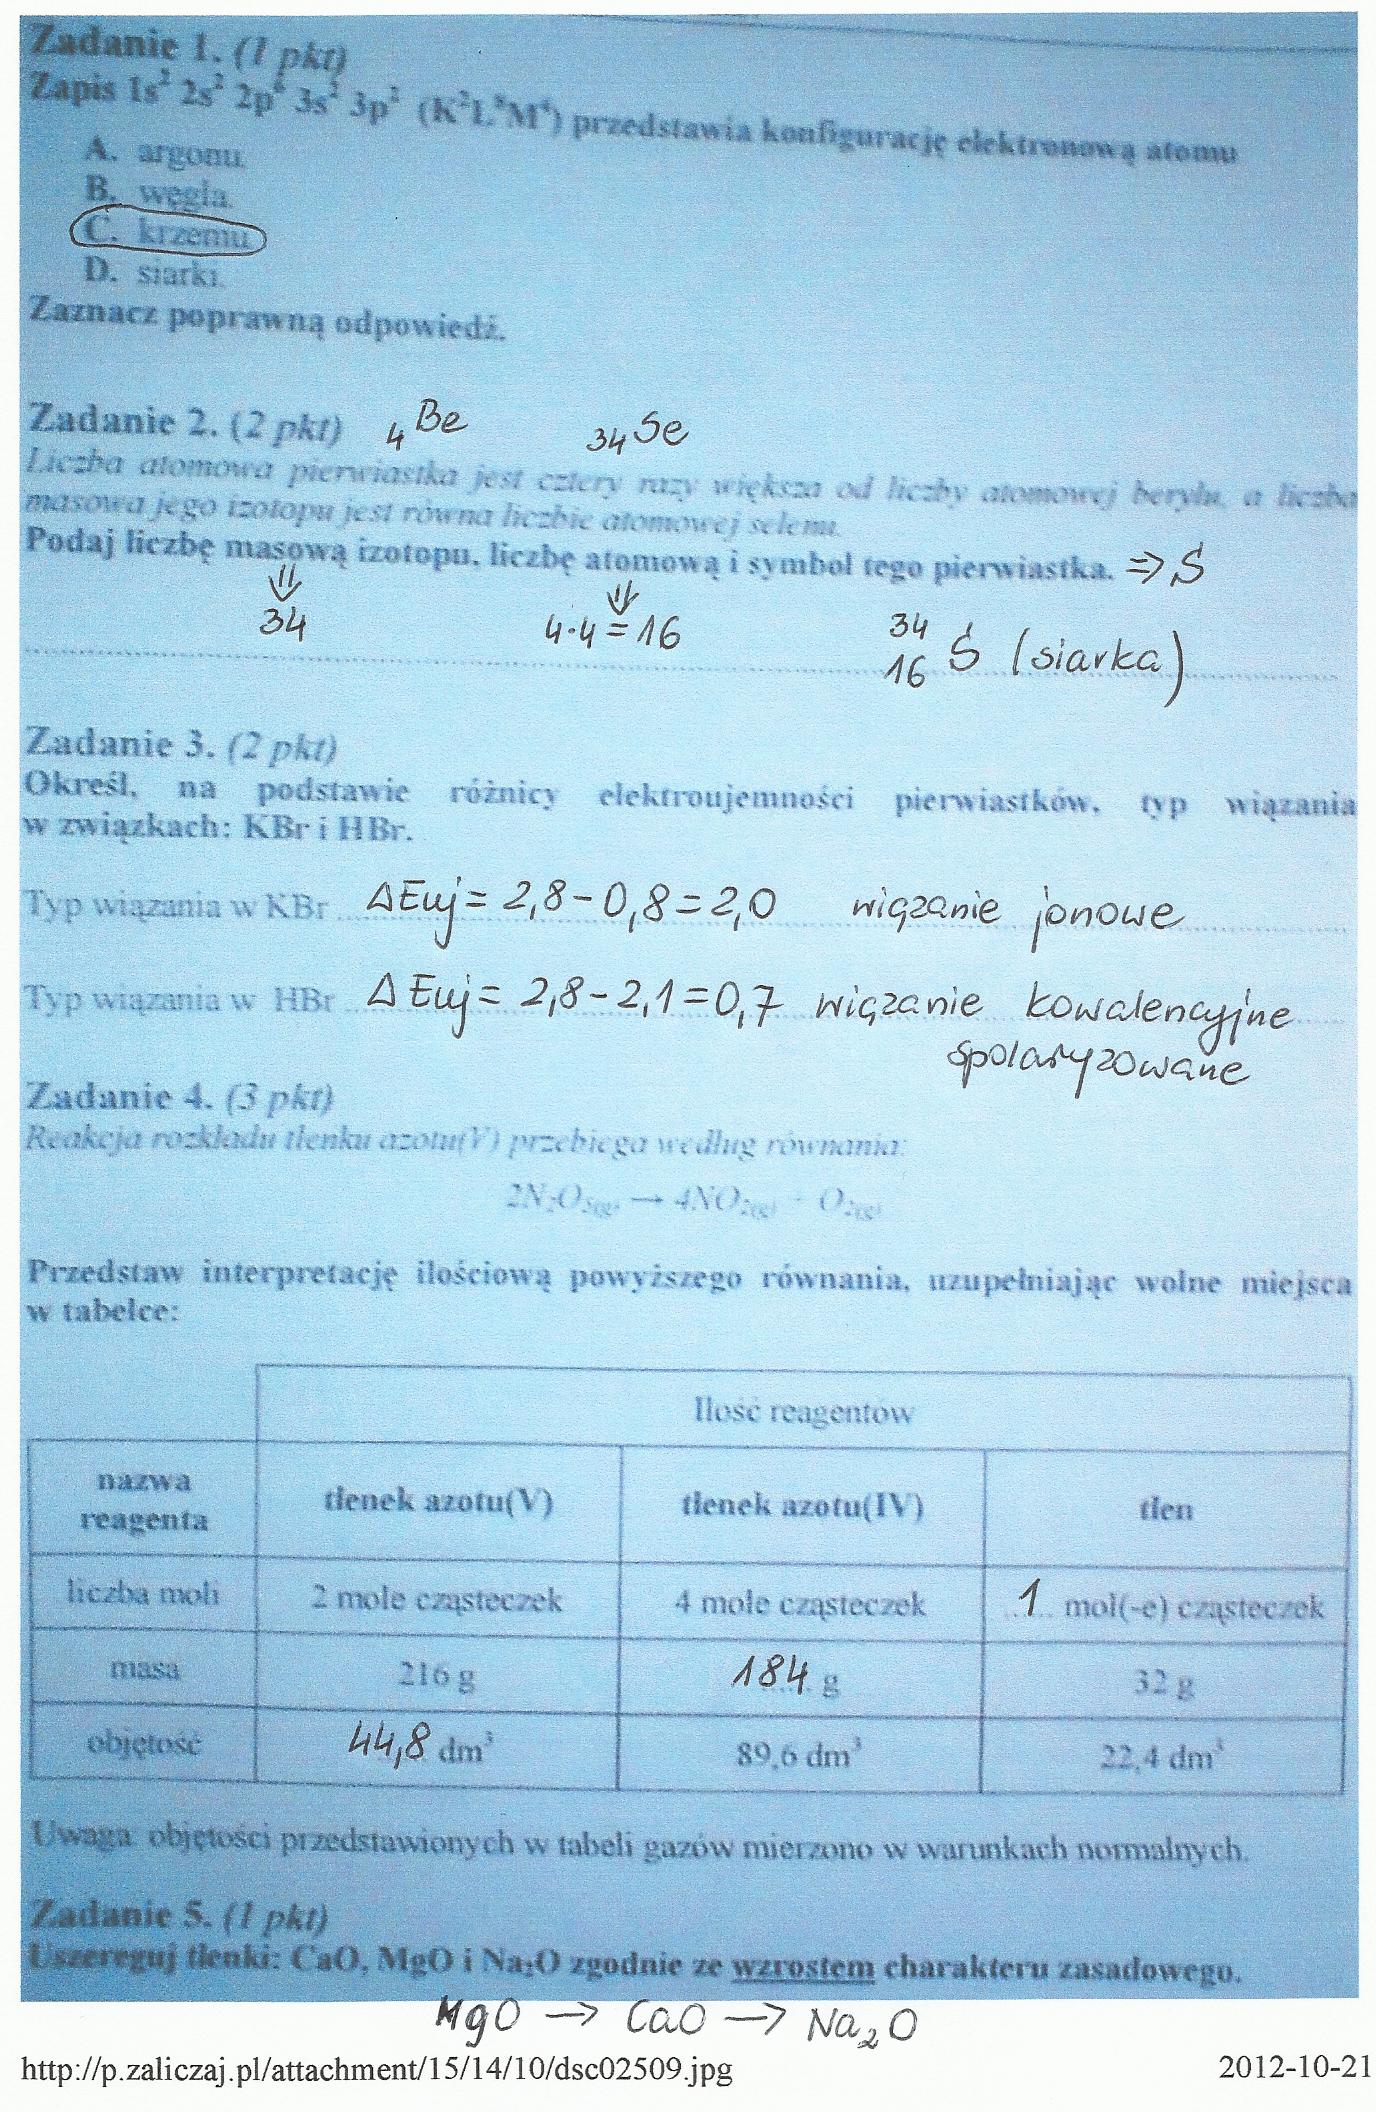 Zadanie 1. (1 pkt)
Zapis 1s² 2s² 2p⁶ 3s² 3p² (K²L⁸M⁴) przedstawia konfigurację elektronową atomu
A. argonu.
B. węgla.
C. krzemu.
D. siarki.
Zaznacz poprawną odpowiedź.
Zadanie 2. (2 pkt) ₄Be ₃₄Se
Liczba atomowa pierwiastka jest cztery razy większa od liczby atomowej berylu, a liczba
masowa jego izotopu jest równa liczbie atomowej selenu.
Podaj liczbę masową izotopu, liczbę atomową i symbol tego pierwiastka. ⇒ S
34 4·4=16 ³⁴₁₆S (siarka)
Zadanie 3. (2 pkt)
Określ, na podstawie różnicy elektroujemności pierwiastków, typ wiązania
w związkach: KBr i HBr.
Typ wiązania w KBr ΔEuj = 2,8 - 0,8 = 2,0 wiązanie jonowe
Typ wiązania w HBr ΔEuj = 2,8 - 2,1 = 0,7 wiązanie kowalencyjne
spolaryzowane
Zadanie 4. (3 pkt)
Reakcja rozkładu tlenku azotu(V) przebiega według równania:
2N₂O₅(g) → 4NO₂(g) + O₂(g)
Przedstaw interpretację ilościową powyższego równania, uzupełniając wolne miejsca
w tabelce:
Ilość reagentów
nazwa
reagenta
tlenek azotu(V) tlenek azotu(IV) tlen
liczba moli 2 mole cząsteczek 4 mole cząsteczek 1 mol(-e) cząsteczek
masa 216 g 184 g 32 g
objętość 44,8 dm³ 89,6 dm³ 22,4 dm³
Uwaga: objętości przedstawionych w tabeli gazów mierzono w warunkach normalnych.
Zadanie 5. (1 pkt)
Uszereguj tlenki: CaO, MgO i Na₂O zgodnie ze wzrostem charakteru zasadowego.
MgO → CaO → Na₂O
http://p.zaliczaj.pl/attachment/15/14/10/dsc02509.jpg 2012-10-21